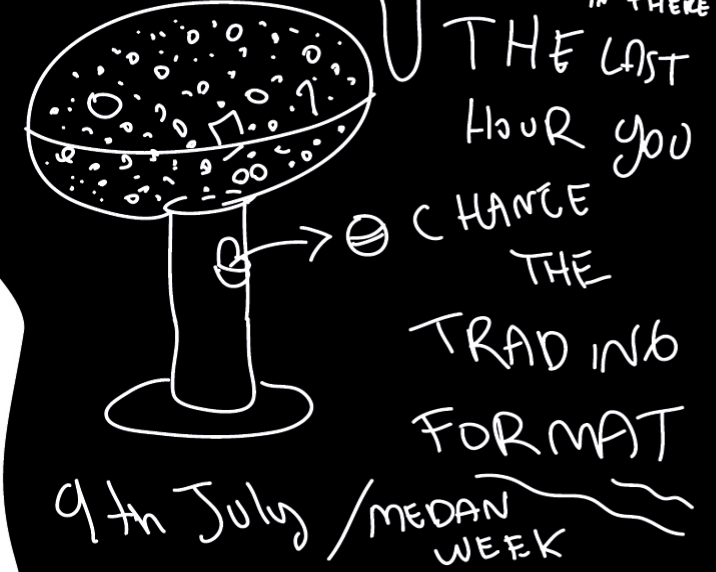 IN THERE
THE LAST
HOUR YOU
CHANGE
THE
TRADING
FORMAT
9th July / MEDAN
WEEK